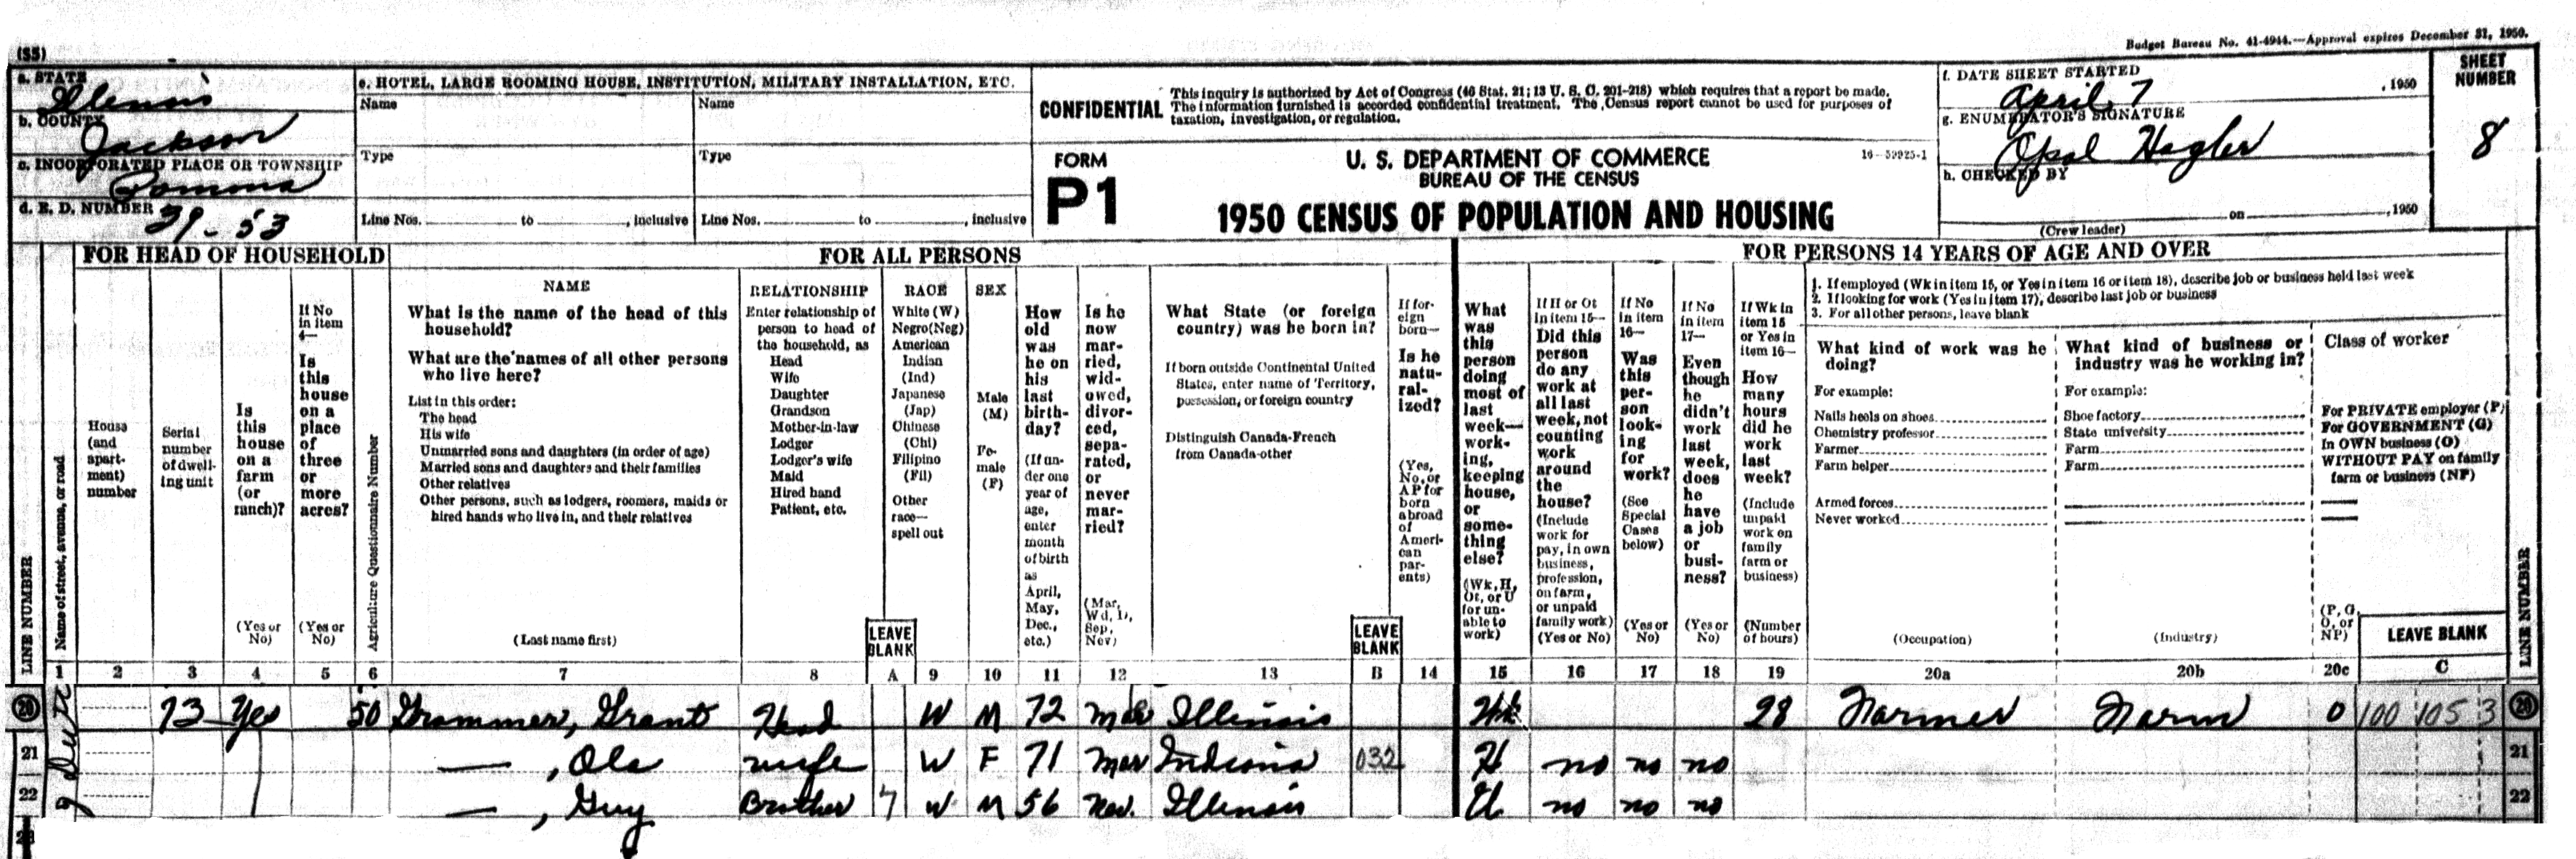 (S5)
Budget Bureau No. 41-4944.—Approval expires December 31, 1950.
a. STATE
Illinois
b. COUNTY
Jackson
c. INCORPORATED PLACE OR TOWNSHIP
Pomona
d. E. D. NUMBER
39-53
e. HOTEL, LARGE ROOMING HOUSE, INSTITUTION, MILITARY INSTALLATION, ETC.
Name Name
Type Type
Line Nos. to , inclusive Line Nos. to , inclusive
CONFIDENTIAL
This inquiry is authorized by Act of Congress (46 Stat. 21; 13 U. S. C. 201-218) which requires that a report be made.
The information furnished is accorded confidential treatment. The Census report cannot be used for purposes of
taxation, investigation, or regulation.
FORM
P1
U. S. DEPARTMENT OF COMMERCE
BUREAU OF THE CENSUS
16—59925-1
1950 CENSUS OF POPULATION AND HOUSING
f. DATE SHEET STARTED
April 7 , 1950
g. ENUMERATOR'S SIGNATURE
Opal Hagler
h. CHECKED BY
on , 1950
(Crew leader)
SHEET
NUMBER
8
FOR HEAD OF HOUSEHOLD
FOR ALL PERSONS
FOR PERSONS 14 YEARS OF AGE AND OVER
LINE NUMBER
Name of street, avenue, or road
House
(and
apart-
ment)
number
Serial
number
of dwell-
ing unit
Is
this
house
on a
farm
(or
ranch)?
(Yes or
No)
If No
in item
4—
Is
this
house
on a
place
of
three
or
more
acres?
(Yes or
No)
Agriculture Questionnaire Number
NAME
What is the name of the head of this
household?
What are the names of all other persons
who live here?
List in this order:
The head
His wife
Unmarried sons and daughters (in order of age)
Married sons and daughters and their families
Other relatives
Other persons, such as lodgers, roomers, maids or
hired hands who live in, and their relatives
(Last name first)
RELATIONSHIP
Enter relationship of
person to head of
the household, as
Head
Wife
Daughter
Grandson
Mother-in-law
Lodger
Lodger's wife
Maid
Hired hand
Patient, etc.
LEAVE
BLANK
RACE
White (W)
Negro(Neg)
American
Indian
(Ind)
Japanese
(Jap)
Chinese
(Chi)
Filipino
(Fil)
Other
race—
spell out
SEX
Male
(M)
Fe-
male
(F)
How
old
was
he on
his
last
birth-
day?
(If un-
der one
year of
age,
enter
month
of birth
as
April,
May,
Dec.,
etc.)
Is he
now
mar-
ried,
wid-
owed,
divor-
ced,
sepa-
rated,
or
never
mar-
ried?
(Mar,
Wd, D,
Sep,
Nev)
What State (or foreign
country) was he born in?
If born outside Continental United
States, enter name of Territory,
possession, or foreign country
Distinguish Canada-French
from Canada-other
LEAVE
BLANK
If for-
eign
born—
Is he
natu-
ral-
ized?
(Yes,
No, or
AP for
born
abroad
of
Ameri-
can
par-
ents)
What
was
this
person
doing
most of
last
week—
work-
ing,
keeping
house,
or
some-
thing
else?
(Wk, H,
Ot, or U
for un-
able to
work)
If H or Ot
in item 15—
Did this
person
do any
work at
all last
week, not
counting
work
around
the
house?
(Include
work for
pay, in own
business,
profession,
on farm,
or unpaid
family work)
(Yes or No)
If No
in item
16—
Was
this
per-
son
look-
ing
for
work?
(See
Special
Cases
below)
(Yes or
No)
If No
in item
17—
Even
though
he
didn't
work
last
week,
does
he
have
a job
or
busi-
ness?
(Yes or
No)
If Wk in
item 15
or Yes in
item 16—
How
many
hours
did he
work
last
week?
(Include
unpaid
work on
family
farm or
business)
(Number
of hours)
1. If employed (Wk in item 15, or Yes in item 16 or item 18), describe job or business held last week
2. If looking for work (Yes in item 17), describe last job or business
3. For all other persons, leave blank
What kind of work was he
doing?
For example:
Nails heels on shoes
Chemistry professor
Farmer
Farm helper
Armed forces
Never worked
(Occupation)
What kind of business or
industry was he working in?
For example:
Shoe factory
State university
Farm
Farm
(Industry)
Class of worker
For PRIVATE employer (P)
For GOVERNMENT (G)
In OWN business (O)
WITHOUT PAY on family
farm or business (NP)
(P, G,
O, or
NP)
LEAVE BLANK
LINE NUMBER
1 2 3 4 5 6 7 8 A 9 10 11 12 13 B 14 15 16 17 18 19 20a 20b 20c C
20 73 Yes 50 Grammer, Grant Head W M 72 Mar Illinois Wk 28 Farmer Farm O 100 105 3 20
21 — , Ola wife W F 71 Mar Indiana 032 H no no no 21
22 — , Guy Brother 7 W M 56 Nev. Illinois U no no no 22